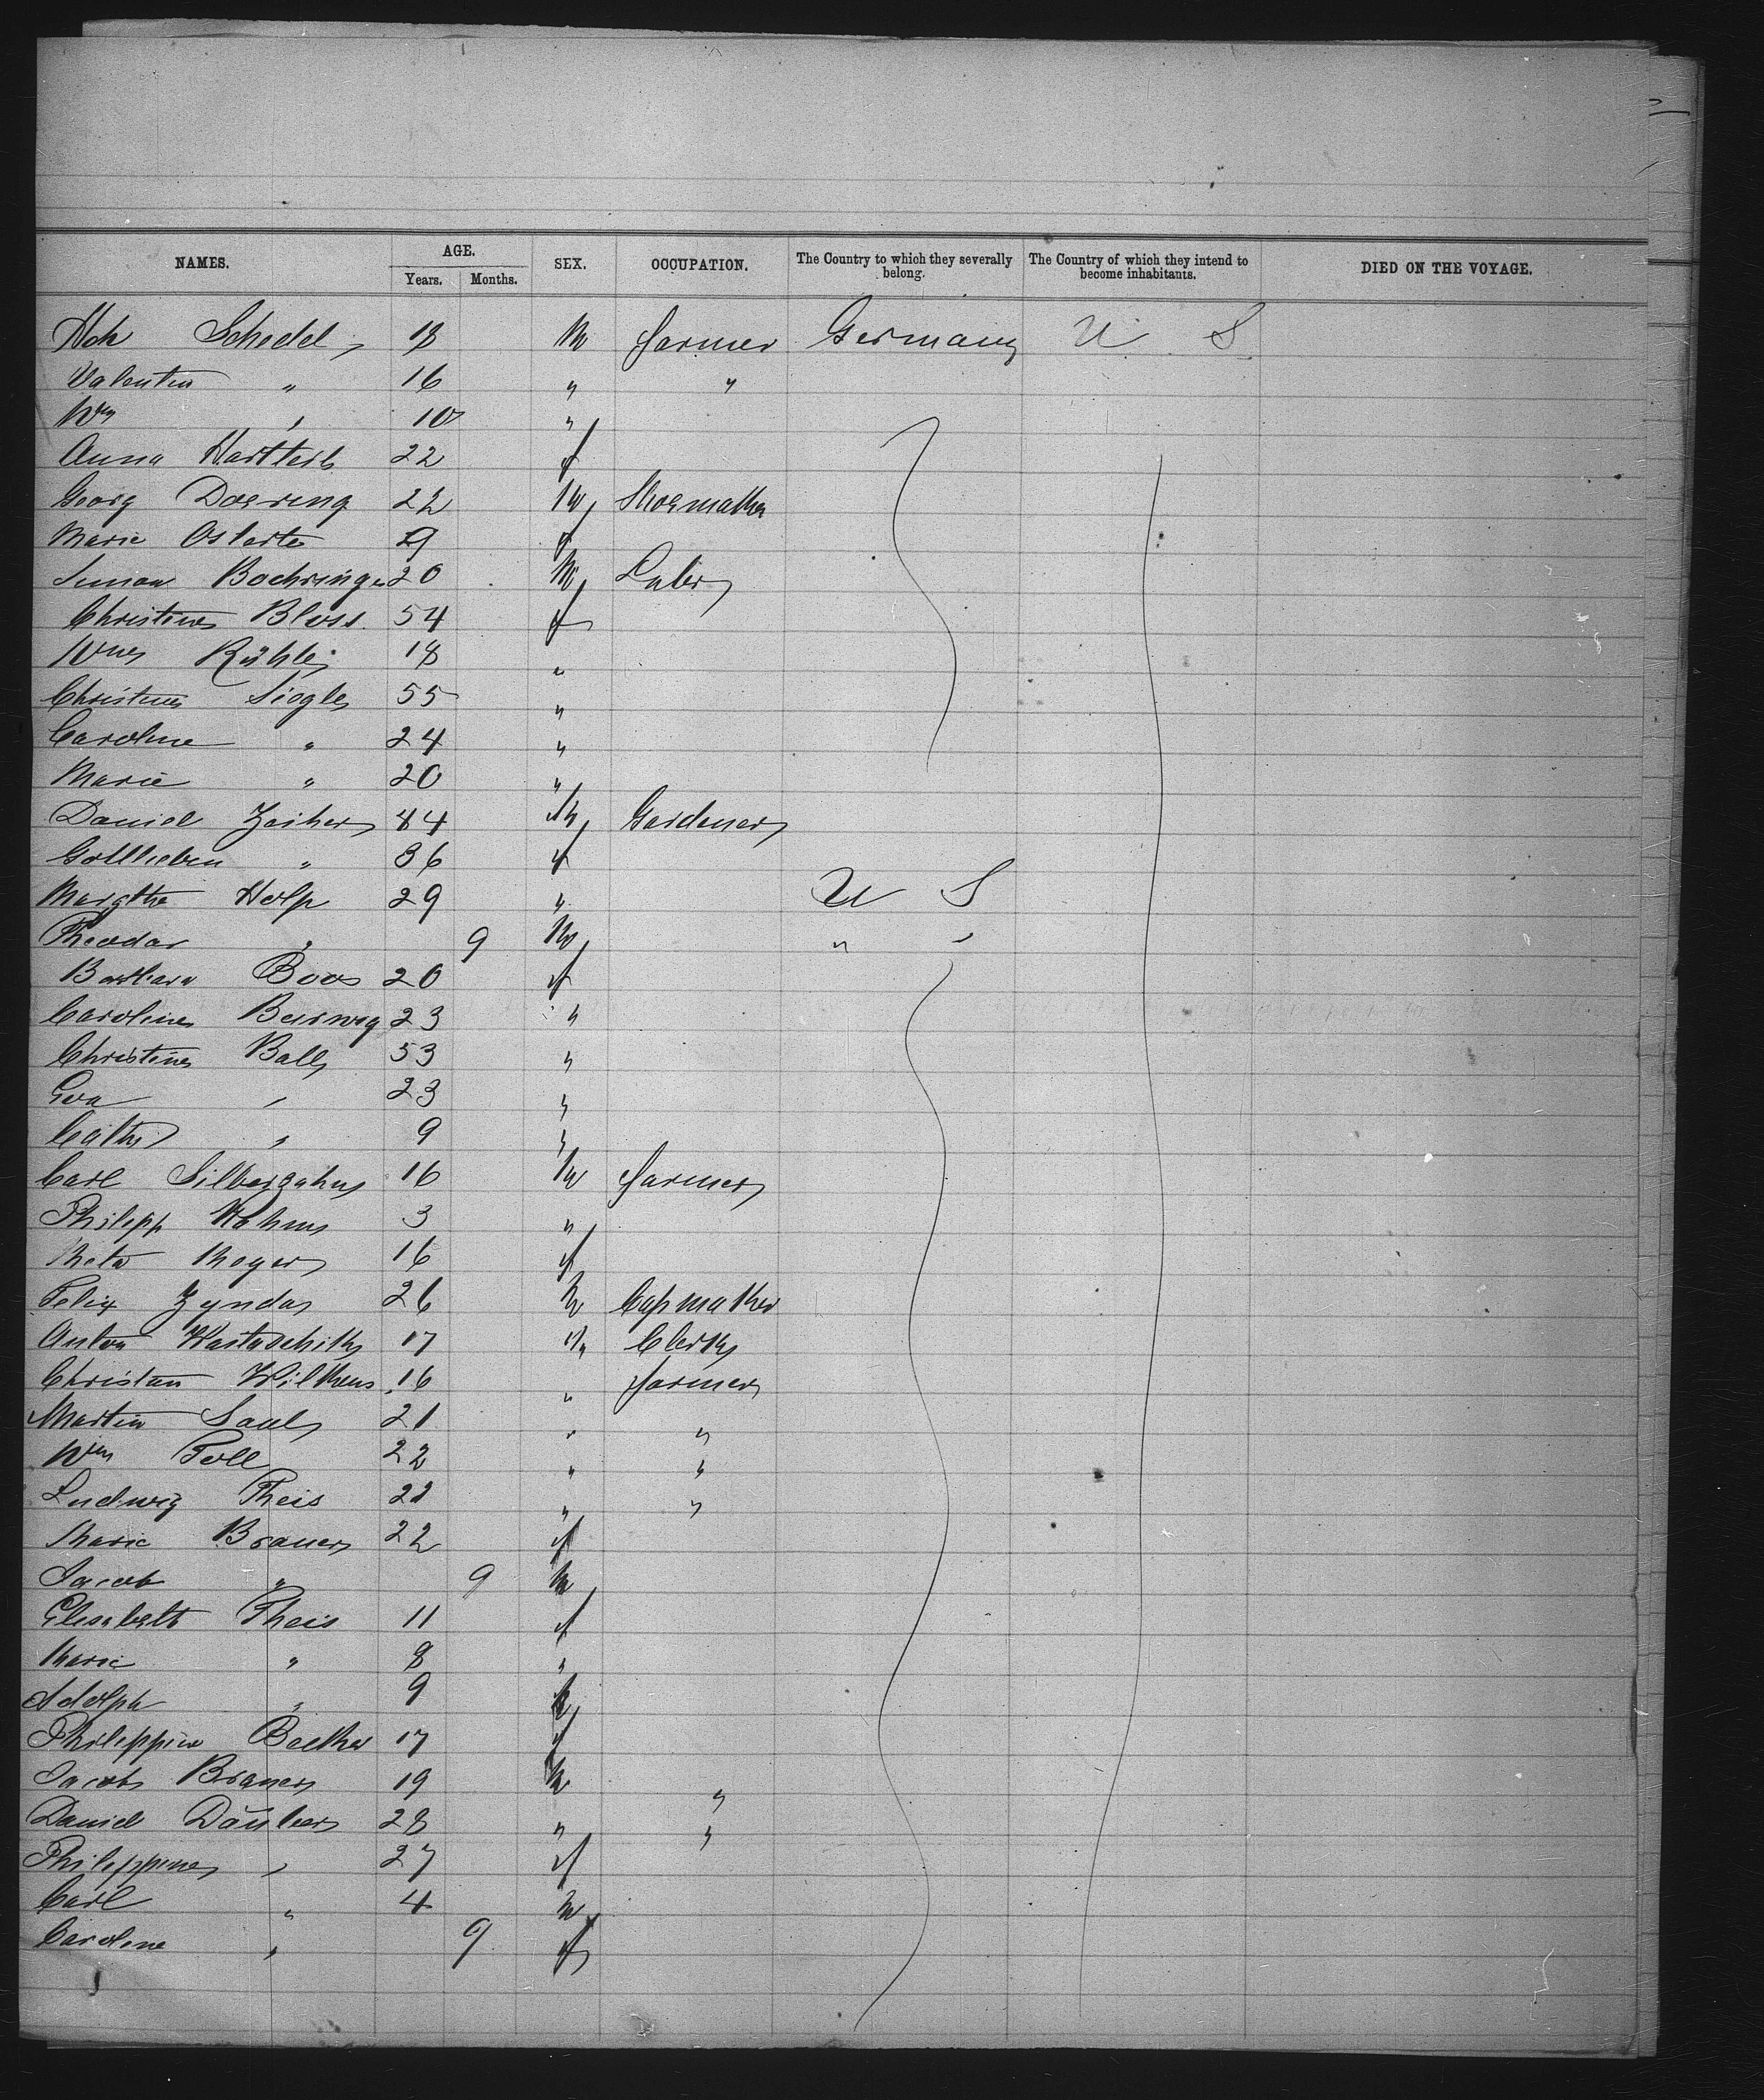 NAMES. AGE. SEX. OCCUPATION. The Country to which they severally belong. The Country of which they intend to become inhabitants. DIED ON THE VOYAGE.
Years. Months.
Schedel 18 M farmer Germany U S
Valentin " 16 " "
Wm " 10 "
Anna 22 f
Georg Doering 22 M Shoemaker
Marie 29 f
Simon Boehringer 20 M Labr
Christine Bloss 54 f
Rühle 18 "
Christine Siegle 55 "
Caroline " 24 "
Marie " 20 "
Daniel Zaiher 44 M Gardener
Gottlieben " 36 f
Margthe Holp 29 " U S
Theodor " 9 M " "
Barbara Boos 20 f
Caroline 23 "
Christine Ball 53 "
Eva " 23 "
Cath " 9 "
Carl 16 M farmer
Philipp 3 "
Meta Meyer 16 f
Felix Zyndas 26 M Capmaker
Anton 17 M Clerk
Christian Wilkens 16 " farmer
Martin Saul 21 " "
Wm Toll 22 " "
Ludwig Theis 22 " "
Marie Brauer 22 f
Jacob " 9 M
Elisabeth Theis 11 f
Marie " 8 "
Adolph " 9 M
Philippine Becker 17 f
Jacob Brauer 19 M "
Daniel Däuber 28 " "
Philippine " 27 f
Carl " 4 M
Caroline " 9 f